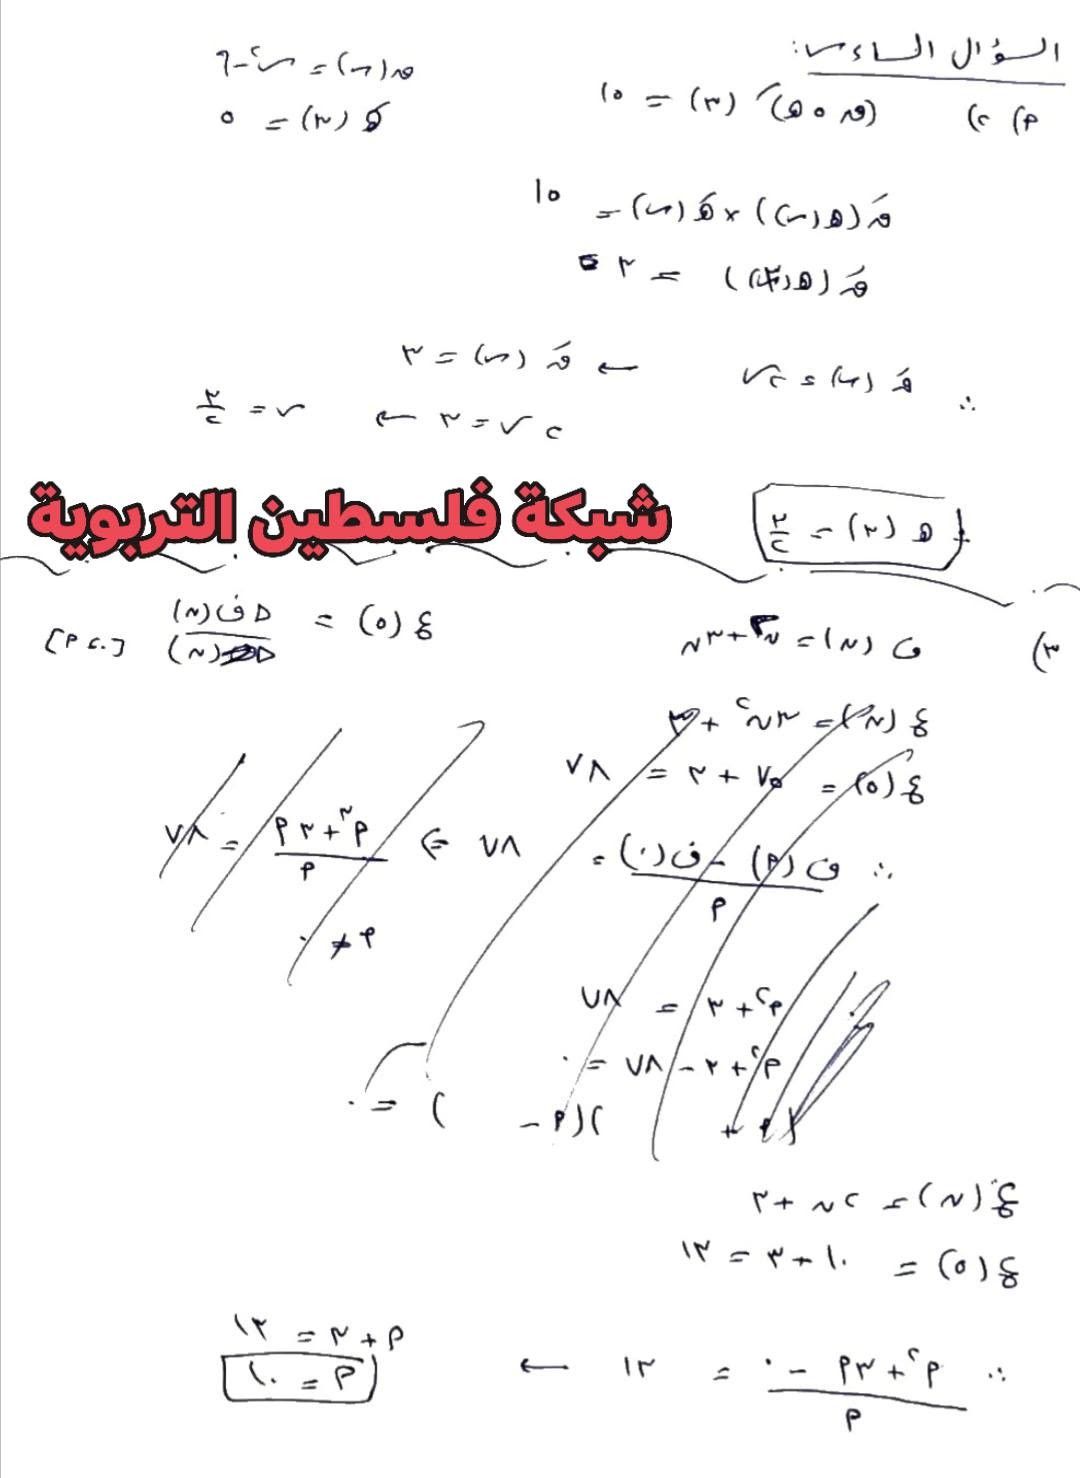 السؤال السادس:
أ) ٢) (ق ٥ هـ)َ (٣) = ١٥ ق(س) = س٢ - ٦
هـَ (٣) = ٥
قَ (هـ(س)) × هـَ (س) = ١٥
قَ (هـ(٣)) = ٣
∴ قَ (س) = ٢س ← قَ (س) = ٣
٢س = ٣ ← س = ٣/٢
هـ (٣) = ٣/٢
شبكة فلسطين التربوية
٣) ف (ن) = ن٢ + ٣ن ع (٥) = Δف(ن) / Δ(ن) [٠، أ]
ع (ن) = ٣ن٢ + ٣
ع (٥) = ٧٥ + ٣ = ٧٨
∴ ف (أ) - ف(٠) / أ = ٧٨ ⇐ أ٣ + ٣أ / أ = ٧٨
أ ≠ ٠
أ٢ + ٣ = ٧٨
أ٢ + ٣ - ٧٨ = ٠
(أ + )(أ - ) = ٠
ع (ن) = ٢ن + ٣
ع (٥) = ١٠ + ٣ = ١٣
∴ أ٢ + ٣أ - ٠ / أ = ١٣ ← أ + ٣ = ١٣
أ = ١٠